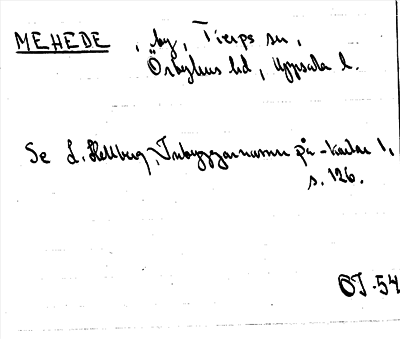 MEHEDE, by, Tierps sn,
Örbyhus hd, Uppsala l.
Se L. Hellberg, Inbyggarnamn på -karlar 1,
s. 126.
OJ -54